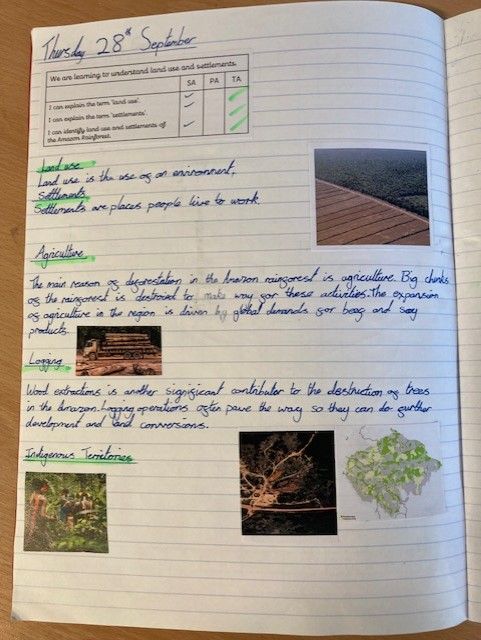 Thursday 28th September
We are learning to understand land use and settlements.
SA PA TA
I can explain the term 'land use'.
I can explain the term 'settlements'.
I can identify land use and settlements of
the Amazon Rainforest.
Land use
Land use is the use of an environment.
Settlements
Settlements are places people live to work.
Agriculture
The main reason of deforestation in the Amazon rainforest is agriculture. Big chunks
of the rainforest is destroid to make way for these activities. The expansion
of agriculture in the region is driven by global demands for beef and soy
products.
Logging
Wood extractions is another significant contributor to the destruction of trees
in the Amazon. Logging operations often pave the way so they can do further
development and land conversions.
Indigenous Territories